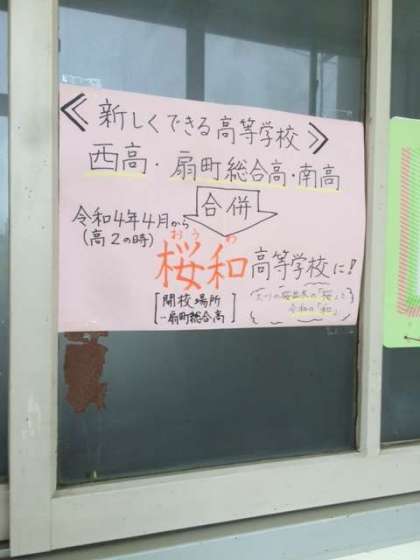 ≪新しくできる高等学校≫
西高・扇町総合高・南高
合併
令和4年4月から
(高2の時)
おう わ
桜和高等学校に!
[開校場所
→扇町総合高]
令和の「和」